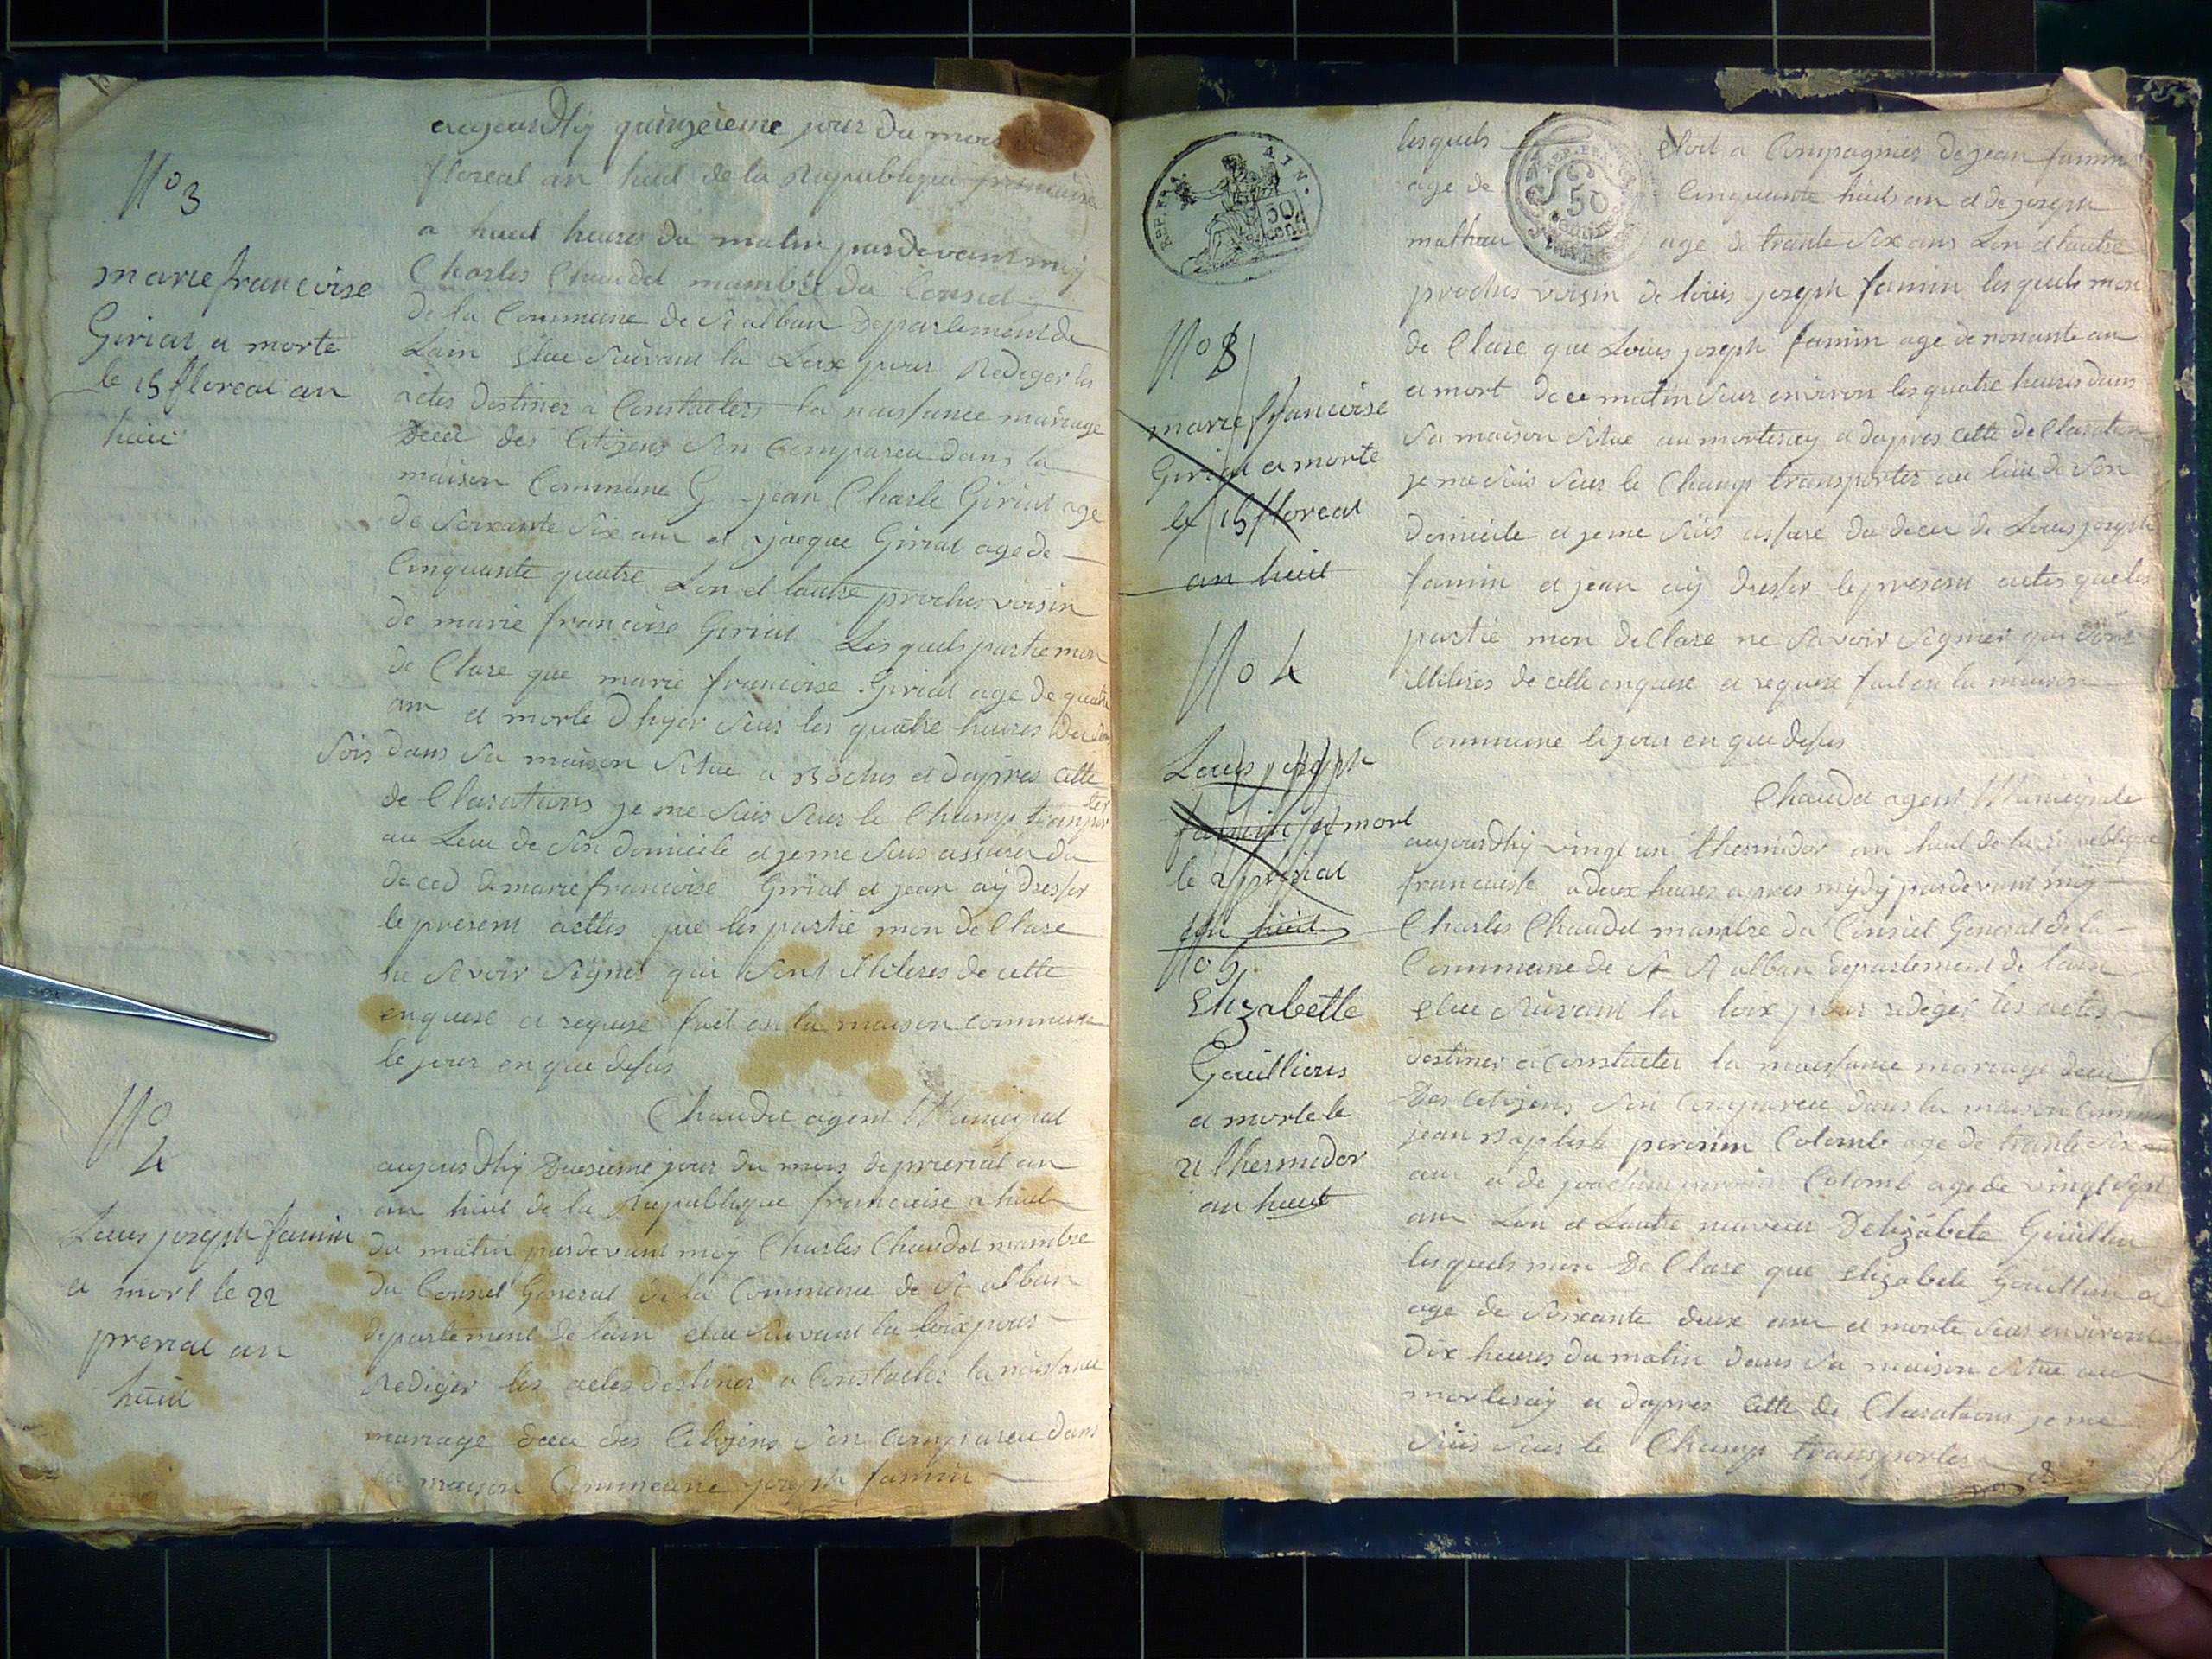 No 3
marie francoise
Giriat a morte
le 15 floreal an
huit
aujourdhÿ quinzeieme jour du mois
floreal an huit de la Republique francaise
a huit heures du matin pardevant moÿ
Charles Chaudet mambre du Consiel
de la Commune de St alban Departement de
Lain Elue suivant la Loix pour Rediger les
actes Destiner a Constacters la naissance mariage
Decet des Citoyens son Compareu dans la
maison Commune G jean Charle Giriat age
de soixante six ans et jacque Giriat age de
Cinquante quatre Lun et lautre proches voisin
de marie francoise Giriat Lesquels partie mon
de Clare que marie francoise Giriat age de quatre
ans et morte dhyer seur les quatre heures Du
soir dans sa maison situe a Roches et dapres cette
de Clarations je me suis seur le Champ transporter
au Leue de son domicile et je me suis assurer du
deced de marie francoise Giriat et jean aÿ dresser
le present acttes que les partie mon de Clare
ne savoir signer qui sont illiteres de cette
enquese et requise fait en la maison commune
le jour en que desus
Chaudet agent Municipal
No
4
Louis joseph famin
a mort le 22
prerial an
huit
aujourdhÿ Duesieme jour du mois de prierial an
an huit de la Republique francaise a huit
du matin pardevant moy Charles Chaudet mambre
du Consiel General de la Commune de St alban
departement de lain elue suivant la loix pour
Rediger les actes destiner a Constacter la naissance
mariage decet des Citoyens son Comparue dans
la maison Commeune joseph famin
REP. FRA. AIN.
50
lesquels etoit a Compagnier de jean famin
age de Cinquante huit an et de joseph
mathieu age de trante six ans Lun et lautre
proches voisin de louis joseph famin lesquels mon
de Clare que Louis joseph famin age de nonante an
a mort de ce matin seur environ les quatre heures dans
sa maison situe au morteraÿ et dapres cette de Claration
je me suis seur le Champ transporter au lieu de son
domicile et je me suis assure du decet de Louis joseph
famin et jean aÿ dresser le present actes que les
partie mon de Clare ne savoir signer qui sont
illiteres de cette enquese et requise fait en la maison
Commune le jour en que desus
Chaudet agent Municipale
No 8
marie francoise
Giriat a morte
le 15 floreal
an huit
No 4
Louis joseph
famin a mort
le 2 prerial
an huit
No 5
Elizabette
Gouillious
a morte le
21 thermidor
an huit
aujourdhÿ vingt un thermidor an huit de la republique
francaise a deux heures apres mÿdÿ pardevant moÿ
Charles Chaudet mambre du Consiel General de la
Commeune de St St alban departement de lain
elue suivant la loix pour rediger les actes
destiner a Constacter la naissance mariage decet
Des Citoyens son Compareu dans la maison Commune
jean Baptiste Colomb age de trante six
ans et de joachim Colomb age de vingt sept
ans Lun et Lautre neuveur Delizabete Gouillou
lesquels mon De Clare que Elizabete Gouillou a
age de soixante deux ans et morte seur environ
dix heures du matin dans sa maison situe au
morteraÿ et dapres cette de Clarations je me
suis seur le Champ transporter